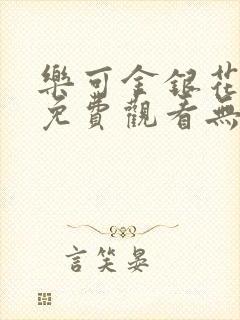 樂可金銀花
免費觀看無
言笑晏